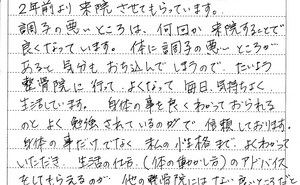 2年前より来院させてもらっています。
調子の悪いところは、何回か来院することで
良くなっています。体に調子の悪いところが
あると気分もおち込んでしまうので、たいよう
整骨院に行って、よくなって毎日気持ちよく
生活しています。身体の事を良くわかっておられる
のと、よく勉強されているので信頼しております。
身体の事だけでなく、私の小性格まで、よくわかって
いただき、生活の仕方、(体の動かし方)のアドバイス
をしてもらえるのが、他の整骨院にはない良いところだと